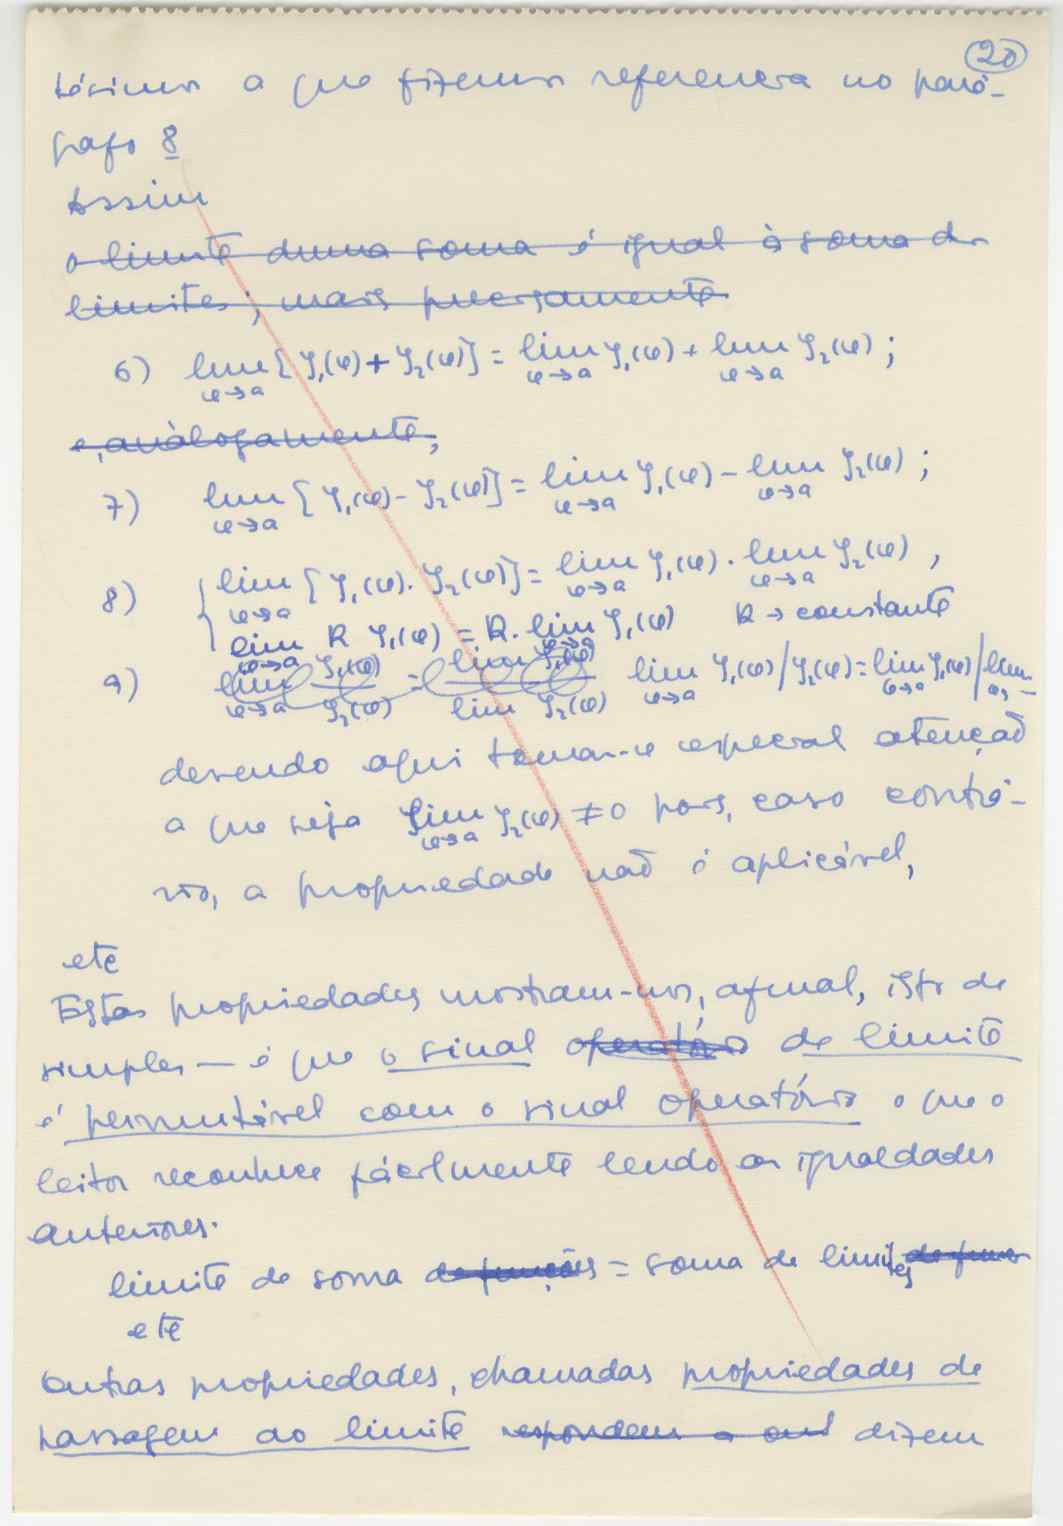 20
térimos a que fizemos referencia no pará-
grafo 8
Assim
o limite duma soma é igual à soma dos
limites; mais precisamente
6) lim [y₁(x) + y₂(x)] = lim y₁(x) + lim y₂(x) ;
x→a x→a x→a
e, anàlogamente,
7) lim [y₁(x) - y₂(x)] = lim y₁(x) - lim y₂(x) ;
x→a x→a x→a
8) { lim [y₁(x) . y₂(x)] = lim y₁(x) . lim y₂(x) ,
x→a x→a x→a
lim k y₁(x) = k . lim y₁(x) k → constante
x→a x→a
9) lim y₁(x)/y₂(x) = lim y₁(x)/lim y₂(x) lim y₁(x)/y₂(x) = lim y₁(x)/lim
x→a x→a x→a
devendo aqui tomar-se especial atenção
a que seja lim y₂(x) ≠ 0 pois, caso contrá-
x→a
rio, a propriedade não é aplicável,
etc
Estas propriedades mostram-nos, afinal, isto de
simples — é que o sinal operatório de limite
é permutável com o sinal operatório o que o
leitor reconhece fàcilmente lendo as igualdades
anteriores.
limite de soma de funções = soma de limites de funções
etc
Outras propriedades, chamadas propriedades de
passagem ao limite respondem a out dizem